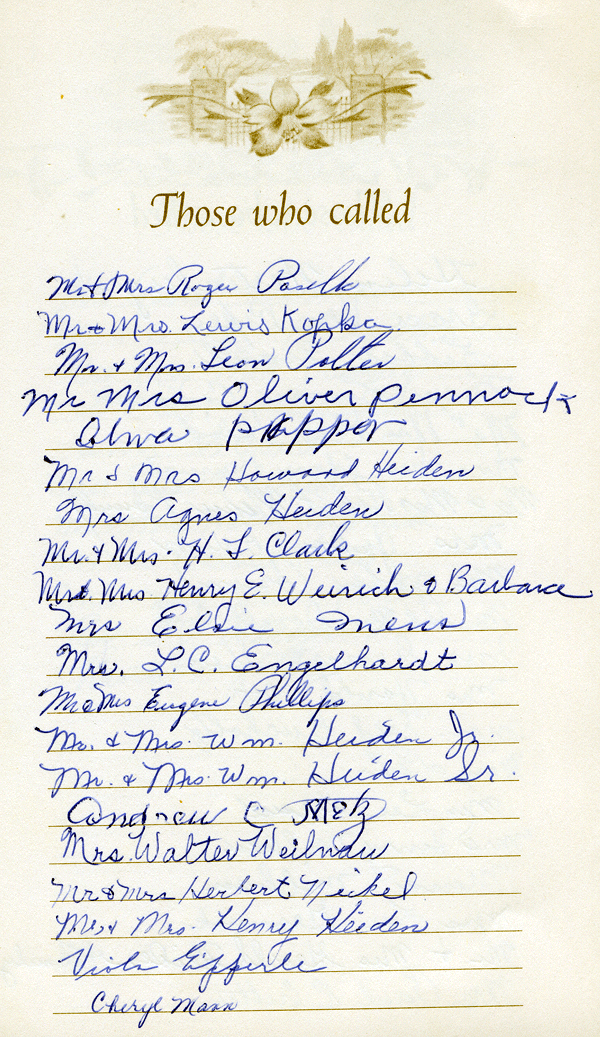 Those who called
Mr + Mrs Roger Paselk
Mr + Mrs. Lewis Kopka
Mr. + Mrs. Leon Polter
Mr Mrs Oliver Pennock
Alma Pepper
Mr & Mrs Howard Heiden
Mrs Agnes Heiden
Mr. + Mrs. H. F. Clark
Mr. & Mrs. Henry E. Weirich & Barbara
Mrs Elsie
Mrs. L.C. Engelhardt
Mr & Mrs Eugene Phillips
Mr. & Mrs. Wm. Heiden Jr.
Mr. & Mrs. Wm. Heiden Sr.
Andrew C Metz
Mrs. Walter Weilnau
Mr & Mrs Herbert Nickel
Mr. + Mrs. Henry Heiden
Viola Epperle
Cheryl Mann